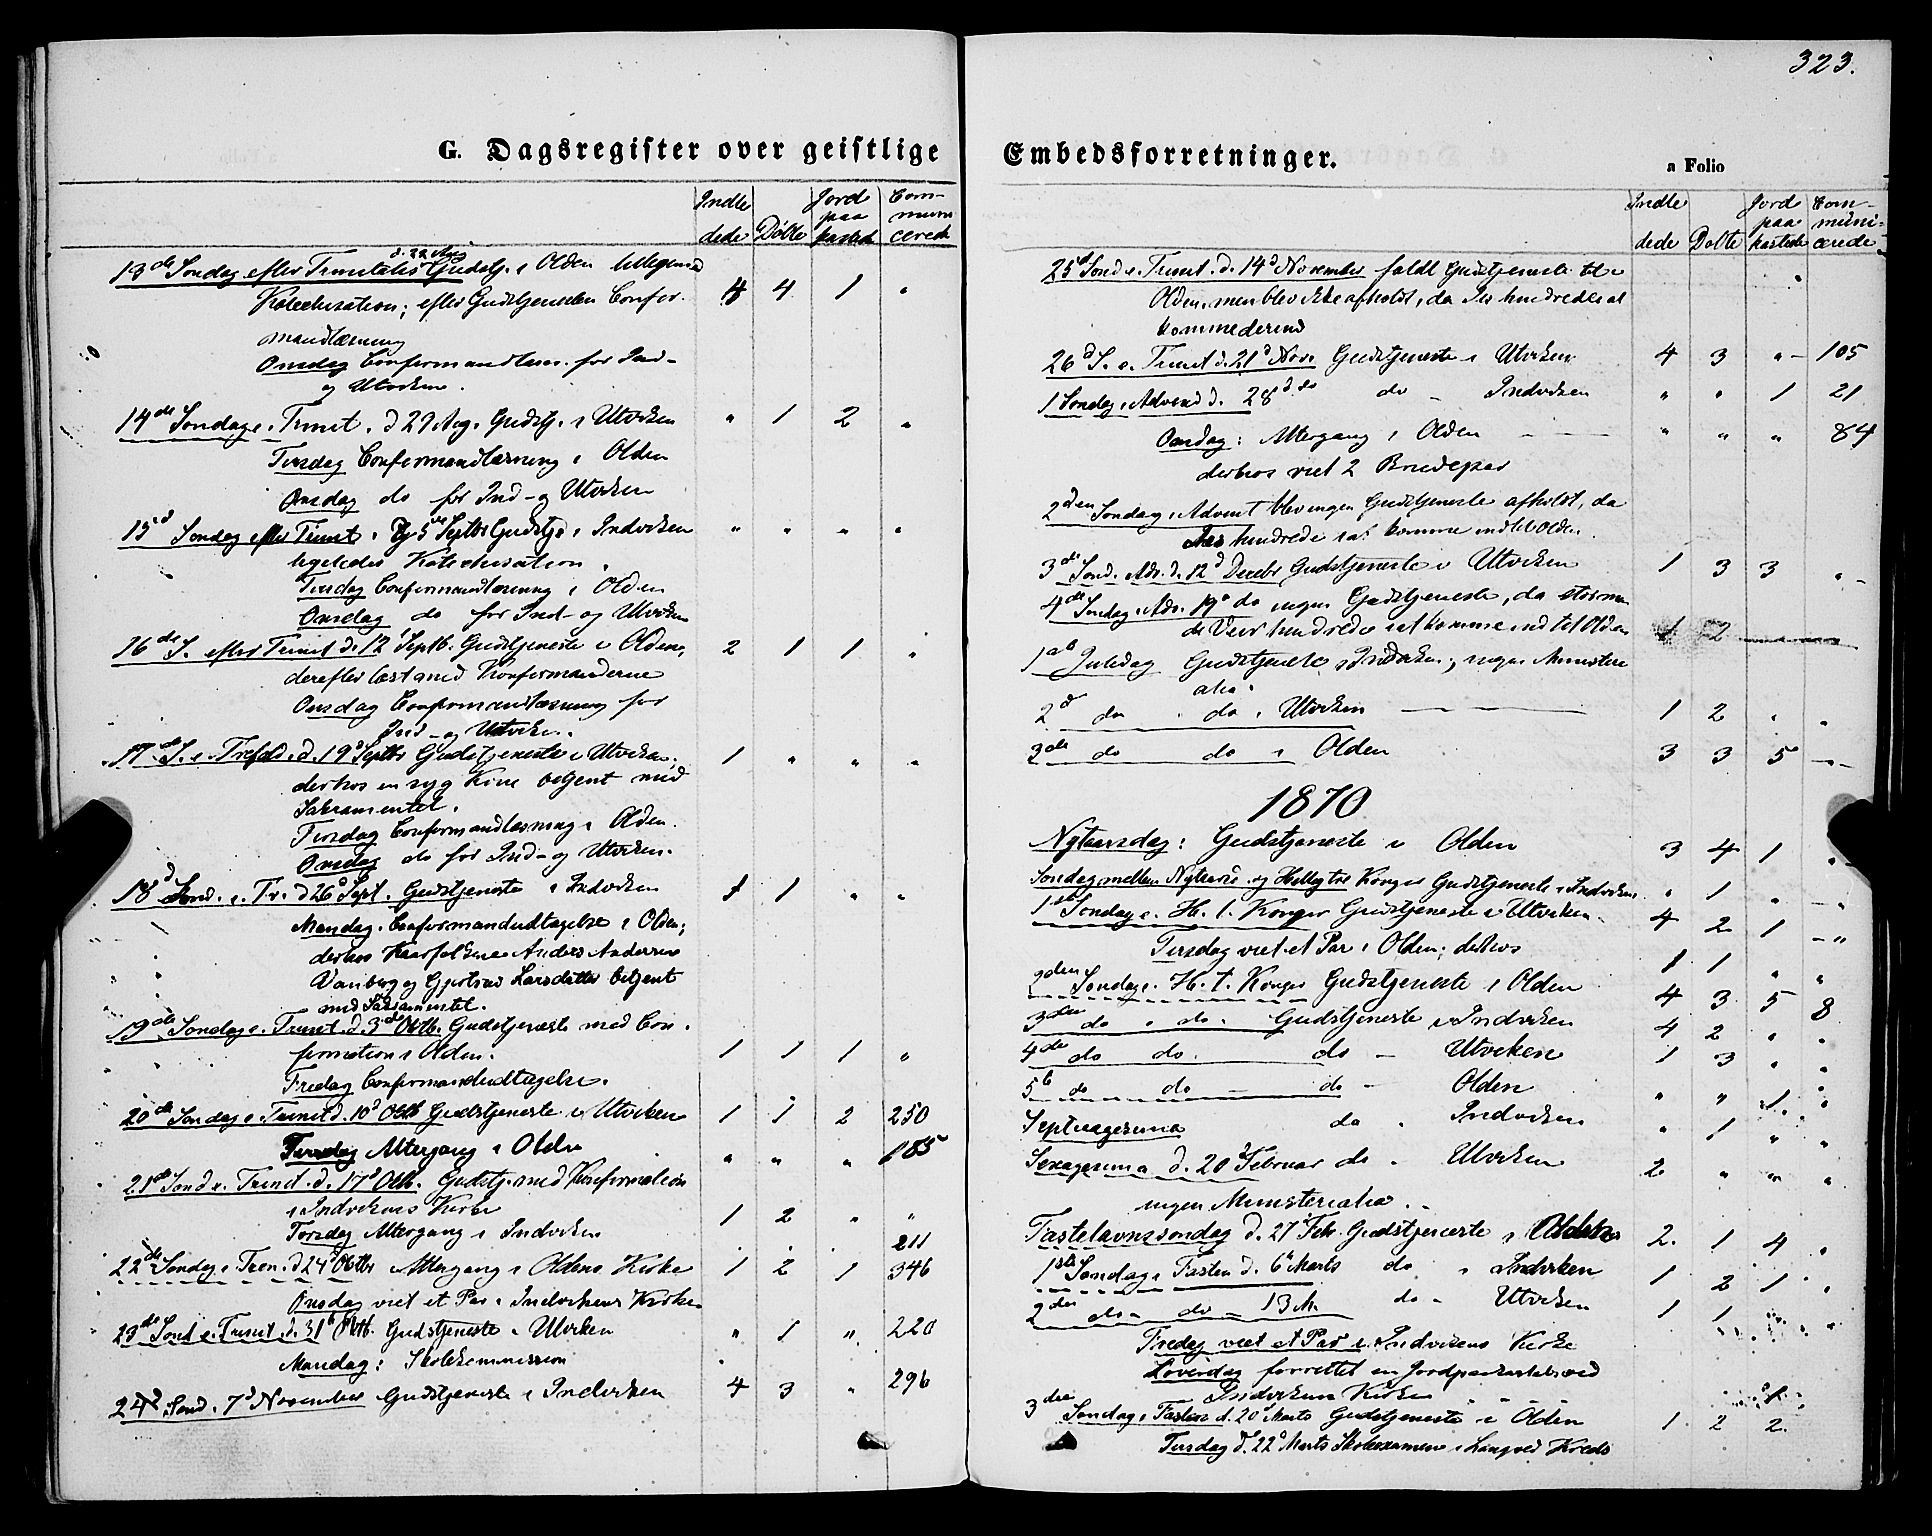 323.
G. Dagsregister over geistlige
Indle
dede
Døbte
Jord
paa
kastede
Com-
muni
cerede
13de Søndag efter Trinitatis d. 22 Aug Gudstj. i Olden
Katechisation; efter Gudstjenesten Confir- 4 4 1 "
mandlæsning
Onsdag Confirmandlæs. for Ind-
og Utviken.
14de Søndag e. Trinit. d 29 Aug. Gudstj. i Utviken " 1 2 "
Tirsdag Confirmandlæsning i Olden
Onsdag do for Ind- og Utviken
15d Søndag efter Trinit. 5te Septbr Gudstj. i Indviken " " " "
ligeledes Katechisation.
Tirsdag Confirmandlæsning i Olden
Onsdag do for Ind- og Utviken
16de S. efter Trinit d. 12 Septb. Gudstjeneste i Olden, 2 1 1 "
derefter læst med Konfirmanderne
Onsdag Confirmandlæsning for
Ind- og Utviken.
17de S. e. Trefold. d. 19d Septbr Gudstjeneste i Utviken; 1 " " "
derhos en syg Kone betjent med
Sakramentet.
Tirsdag Confirmandlæsning i Olden.
Onsdag do for Ind- og Utviken.
18d Sond. e. Tr. d 26d Sept. Gudstjeneste i Indviken 1 1 " "
Mandag. Confirmandudtagelse i Olden;
derhos Kaarfolkene Anders Andersen
og Gjertrud Larsdatter betjent
med Sakramentet.
19de Søndag e. Trinit. d. 3de Octb. Gudstjeneste med Con-
firmation i Olden. 1 1 1 "
Fredag Confirmandudtagelse.
20de Søndag e. Trinit d. 10d Octb Gudstjeneste i Utviken 1 1 2 250
Tirsdag Altergang i Olden " " " 185
21de Sond e. Trinit. d. 17d Octb. Gudstj. med Konfirmation
i Indvikens Kirke 1 2 " "
Torsdag Altergang i Indviken 211
22de Søndag e. Trin. d 24d Octbr Altergang i Oldens Kirke 1 2 1 346
Onsdag viet et Par i Indvikens Kirke
23de Sond e. Trinit. d. 31te Octb. Gudstjeneste i Utviken " 1 " 220
Mandag: Skolekommission
24d Sond. 7d November Gudstjeneste i Indviken 4 3 " 296
Embedsforretninger.
a Folio
Indle
dede
Døbte
Jord
paa
kastede
Com-
muni-
cerede
25d Sond e. Trinit. d. 14d November faldt Gudstjeneste til i
Olden, men blev ikke afholdt, da hindredes at
komme derind
26d S. e. Trinit d. 21d Nov. Gudstjeneste i Utviken 4 3 " 105
1 Søndag i Advend d. 28d do do - Indviken " " 1 21
Onsdag: Altergang i Olden " " " 84
derhos viet 2 Brudepar
2den Søndag i Advent blev ingen Gudstjeneste afholdt, da
hindrede i at komme ind til Olden.
3de Sond. Adv. d. 12d Decebr Gudstjeneste i Utviken 1 3 3 "
4de Søndag i Adv. 19d do ingen Gudstjeneste, da
Veir hindrede i at komme ind til Olden 1 2
1ste Juledag Gudstjeneste i Indviken; ingen Ministeri
alia.
2d do do i Utviken 1 2 " "
3de do do i Olden 3 3 5 "
1870
Nytaarsdag: Gudstjeneste i Olden 3 4 1 "
Søndag mellem Nytaar og Hellig tre Konger Gudstjeneste i Indviken " 1 " "
1ste Søndag e. H. t. Konger Gudstjeneste i Utviken. 4 2 1 "
Tirsdag viet et Par i Olden; derhos 1 1 " "
2den Søndag e. H. t. Konger Gudstjeneste i Olden 4 3 5 8
3die do e do. Gudstjeneste i Indviken 4 2 " "
4de do do. do - Utviken 1 3 " "
5te do do - do - Olden " " 1 "
Septuagesima do Indviken " 1 " "
Sexagesima d. 20d Februar do - Utviken 2. " " "
ingen Ministerialia.
Fastelavnssøndag d. 27 Feb. Gudstjeneste i Olden 2. 1 4 "
1ste Søndag i Fasten d. 6te Marts do i Indviken 1 2 1 "
2den do do 13 M. do - Utviken 1 1 " "
Fredag viet et Par i Indvikens Kirke
Løverdag forrettet en Jordpaakastelse ved
Indvikens Kirke 1.
3die Søndag i Fasten d. 20d Marts Gudstjeneste i Olden 1 2 2.
Tirsdag d. 22d Marts Skoleexamen i Kreds